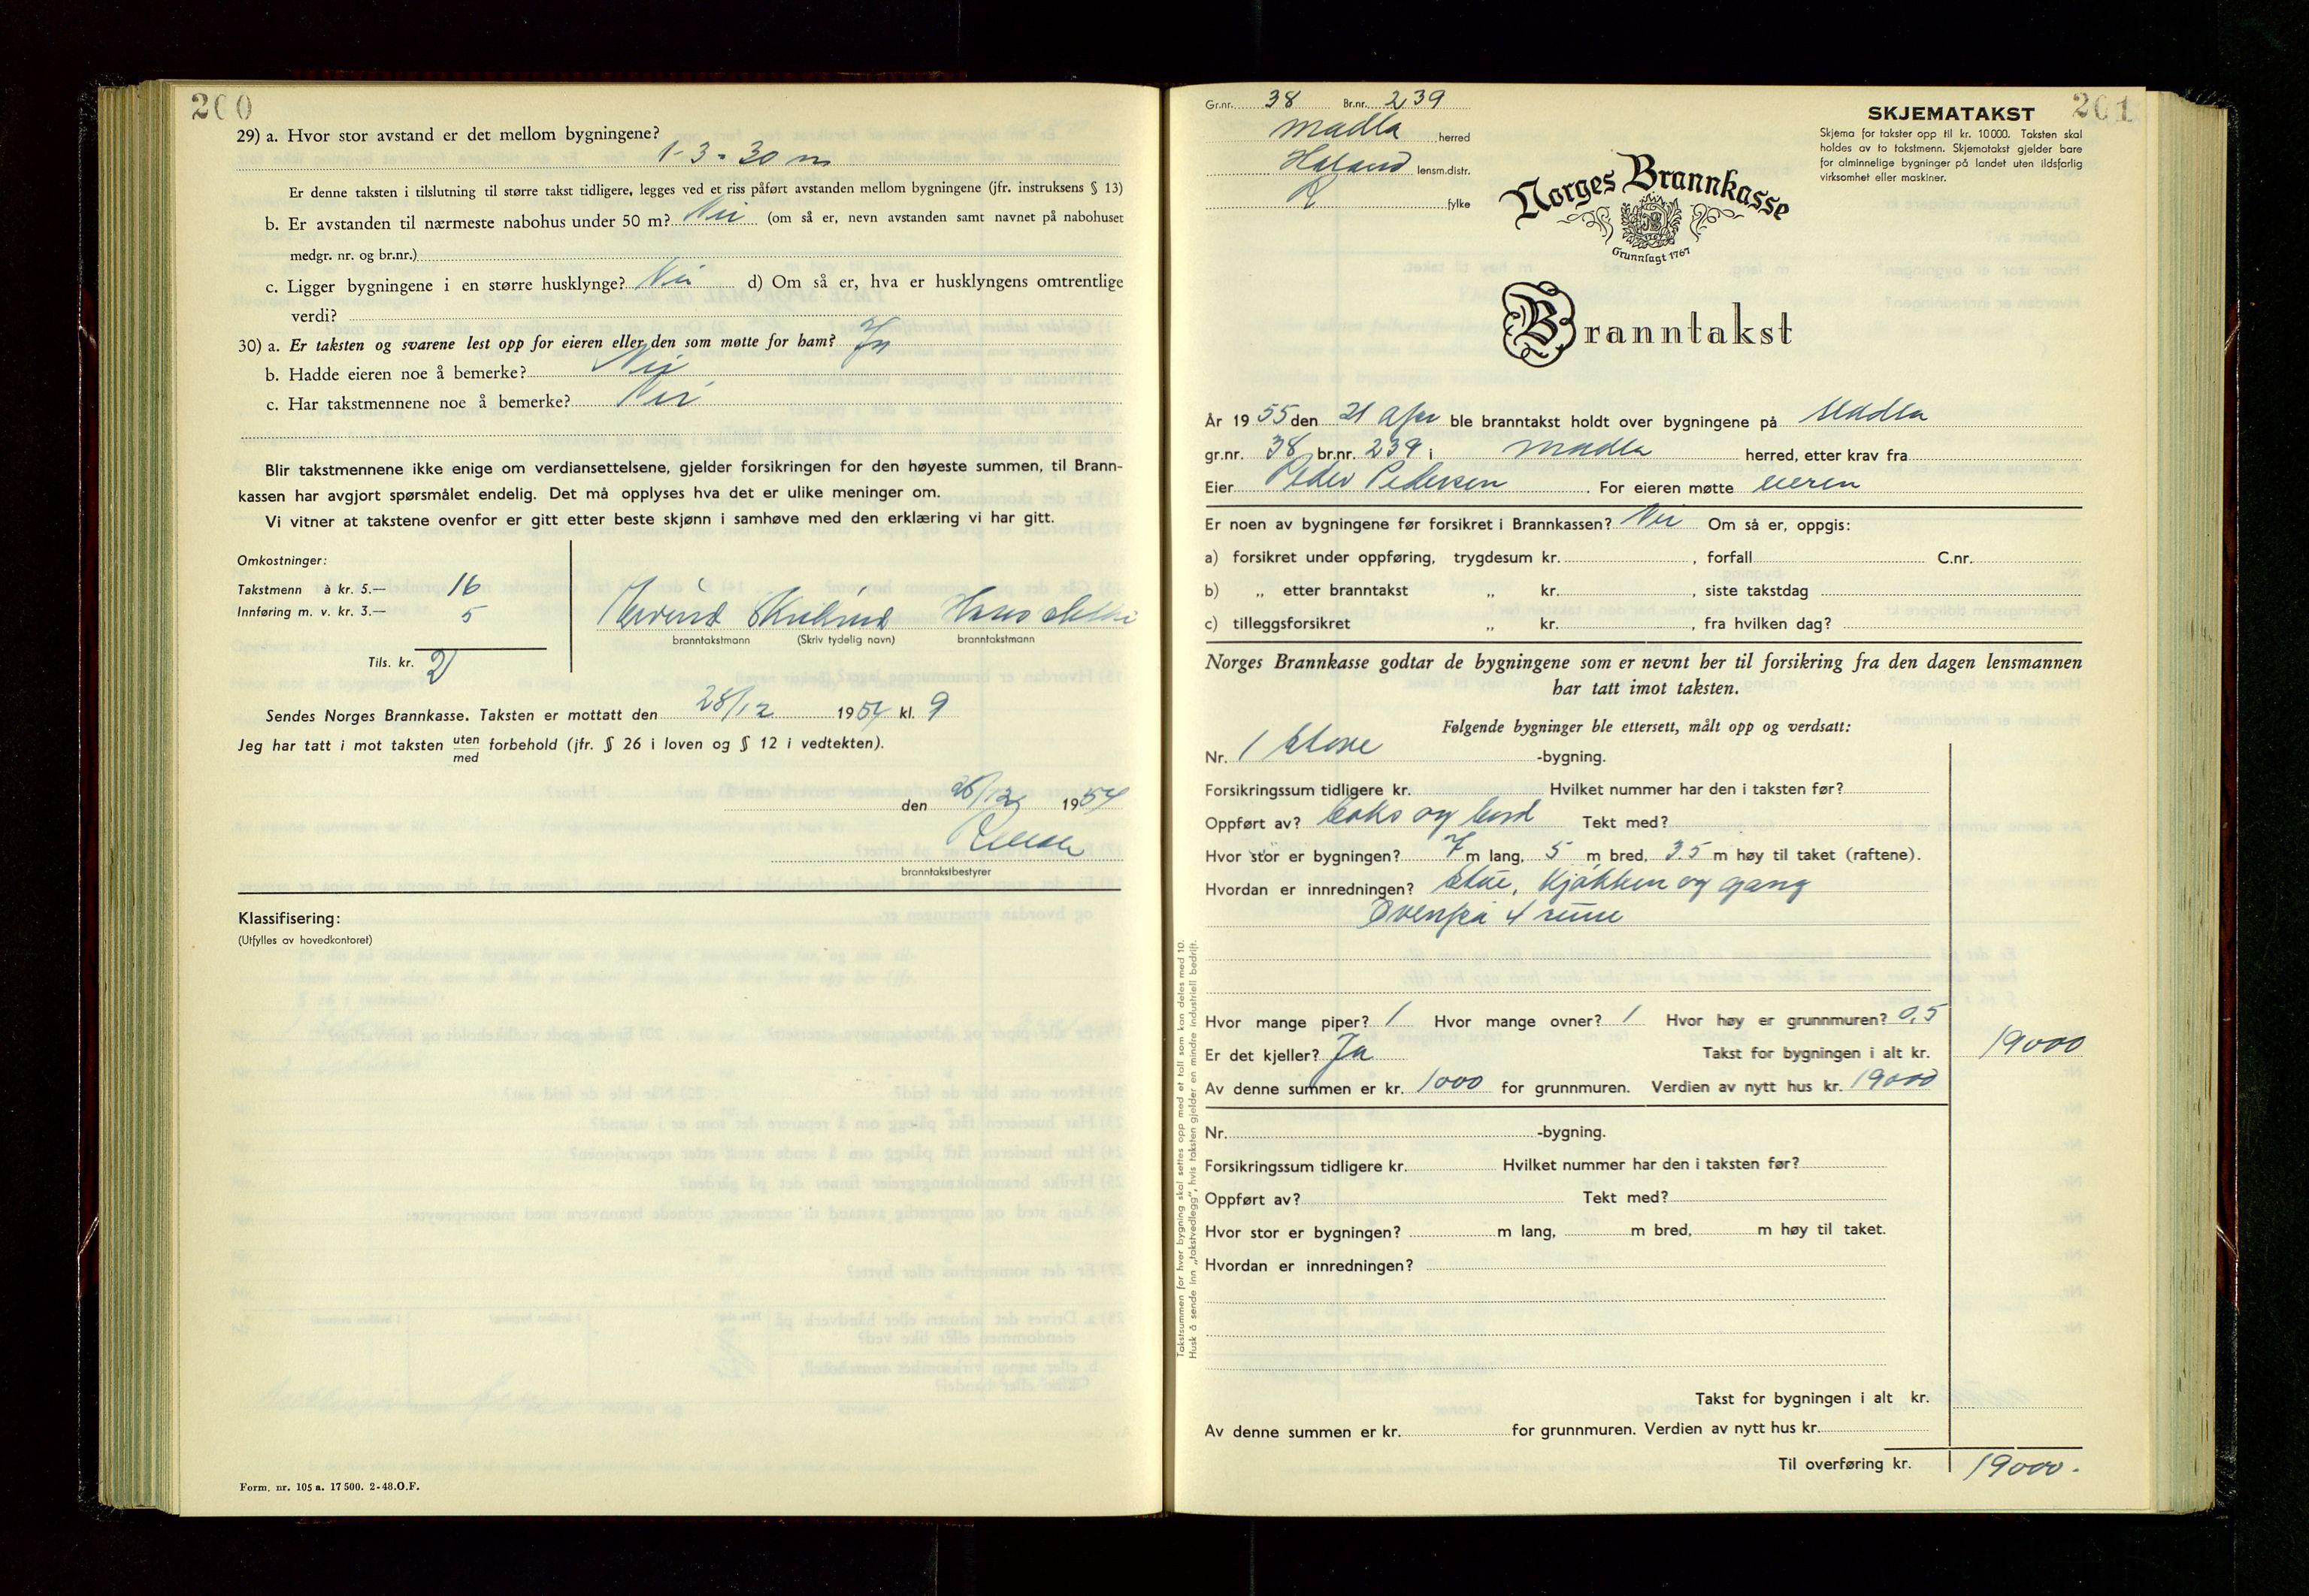 260
29) a. Hvor stor avstand er det mellom bygningene?
1-3 = 30 m
Er denne taksten i tilslutning til større takst tidligere, legges ved et riss påført avstanden mellom bygningene (jfr. instruksens § 13)
b. Er avstanden til nærmeste nabohus under 50 m? Nei (om så er, nevn avstanden samt navnet på nabohuset
medgr. nr. og br.nr.)
c. Ligger bygningene i en større husklynge? Nei d) Om så er, hva er husklyngens omtrentlige
verdi?
30) a. Er taksten og svarene lest opp for eieren eller den som møtte for ham? Ja
b. Hadde eieren noe å bemerke? Nei
c. Har takstmennene noe å bemerke? Nei
Blir takstmennene ikke enige om verdiansettelsene, gjelder forsikringen for den høyeste summen, til Brann-
kassen har avgjort spørsmålet endelig. Det må opplyses hva det er ulike meninger om.
Vi vitner at takstene ovenfor er gitt etter beste skjønn i samhøve med den erklæring vi har gitt.
Omkostninger:
Takstmenn à kr. 5.— 16
Innføring m. v. kr. 3.— 5
Hans
branntakstmann (Skriv tydelig navn) branntakstmann
Tils. kr. 21
Sendes Norges Brannkasse. Taksten er mottatt den 28/12 1954 kl. 9
Jeg har tatt i mot taksten uten forbehold (jfr. § 26 i loven og § 12 i vedtekten).
med
den 28/12 1954
branntakstbestyrer
Klassifisering:
(Utfylles av hovedkontoret)
Form. nr. 105 a. 17 500. 2-48.O.F.
Gr.nr. 38 Br.nr. 239
Madla herred
Håland lensm.distr.
R fylke
SKJEMATAKST 261
Skjema for takster opp til kr. 10 000. Taksten skal
holdes av to takstmenn. Skjematakst gjelder bare
for alminnelige bygninger på landet uten ildsfarlig
virksomhet eller maskiner.
Norges Brannkasse
Grunnlagt 1767
Branntakst
År 1955 den 21 apr ble branntakst holdt over bygningene på Madla
gr.nr. 38 br.nr. 239 i Madla herred, etter krav fra
Eier Peder Pedersen For eieren møtte eieren
Er noen av bygningene før forsikret i Brannkassen? Nei Om så er, oppgis:
a) forsikret under oppføring, trygdesum kr. , forfall C.nr.
b) „ etter branntakst „ kr. , siste takstdag
c) tilleggsforsikret „ kr. , fra hvilken dag?
Norges Brannkasse godtar de bygningene som er nevnt her til forsikring fra den dagen lensmannen
har tatt imot taksten.
Følgende bygninger ble ettersett, målt opp og verdsatt:
Nr. 1 -bygning.
Forsikringssum tidligere kr. Hvilket nummer har den i taksten før?
Oppført av? og bord Tekt med?
Hvor stor er bygningen? 7 m lang, 5 m bred, 3.5 m høy til taket (raftene).
Hvordan er innredningen? Stue, kjøkken og gang
Ovenpå 4 rum
Hvor mange piper? 1 Hvor mange ovner? 1 Hvor høy er grunnmuren? 0,5
Er det kjeller? Ja Takst for bygningen i alt kr. 19000
Av denne summen er kr. 1000 for grunnmuren. Verdien av nytt hus kr. 19000
Nr. -bygning.
Forsikringssum tidligere kr. Hvilket nummer har den i taksten før?
Oppført av? Tekt med?
Hvor stor er bygningen? m lang, m bred, m høy til taket.
Hvordan er innredningen?
Takst for bygningen i alt kr.
Av denne summen er kr. for grunnmuren. Verdien av nytt hus kr.
Til overføring kr. 19000.-
Takstsummen for hver bygning skal settes opp med et tall som kan deles med 10.
Husk å sende inn „takstvedlegg", hvis taksten gjelder en mindre industriell bedrift.